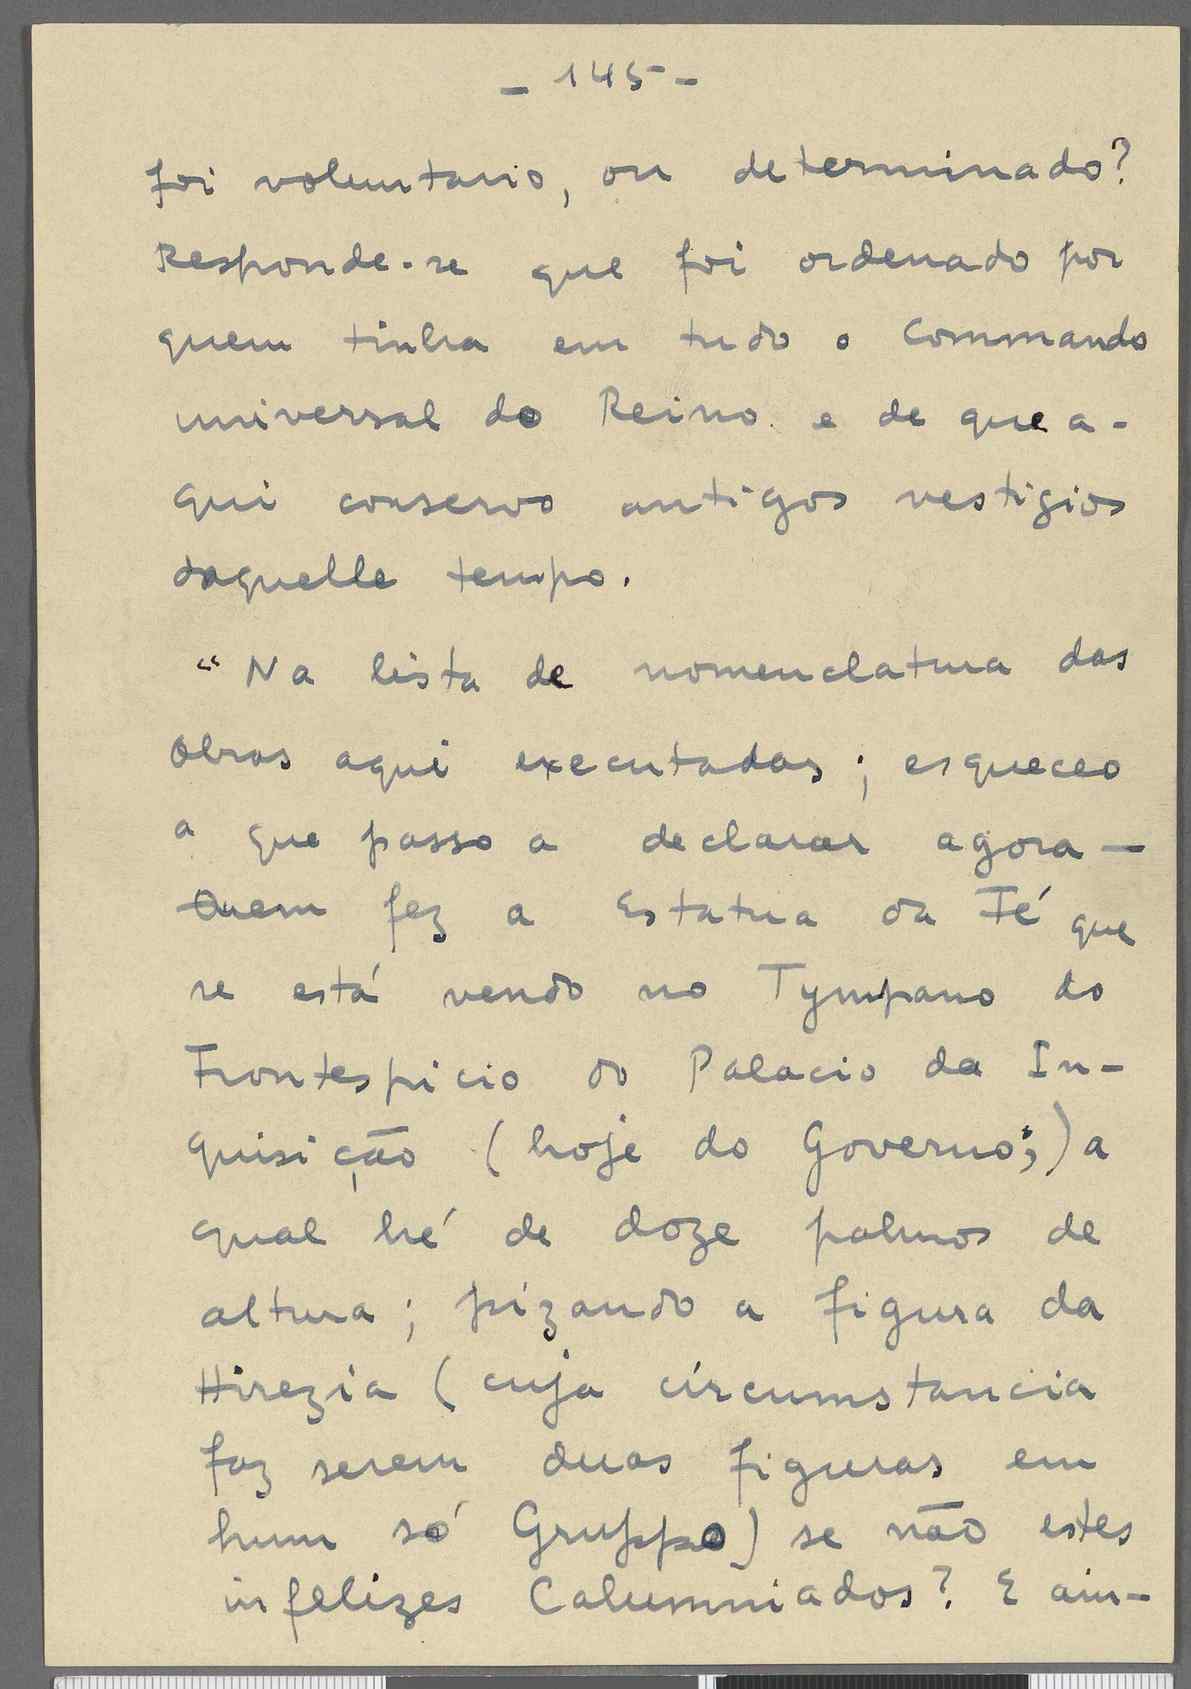 - 145 -
foi voluntario, ou determinado?
Responde-se que foi ordenado por
quem tinha em tudo o Commando
universal do Reino e de que a-
qui conservo antigos vestigios
daquelle tempo.
"Na lista de nomenclatura das
obras aqui executadas; esqueceo
a que passo a declarar agora —
Quem fez a Estatua da Fé que
se está vendo no Tympano do
Frontespicio do Palacio da In-
quisição (hoje do Governo;) a
qual hé de doze palmos de
altura; pizando a figura da
Hirezia (cuja circumstancia
faz serem duas figuras em
hum só Gruppo) se não estes
infelizes Calumniados? E ain-